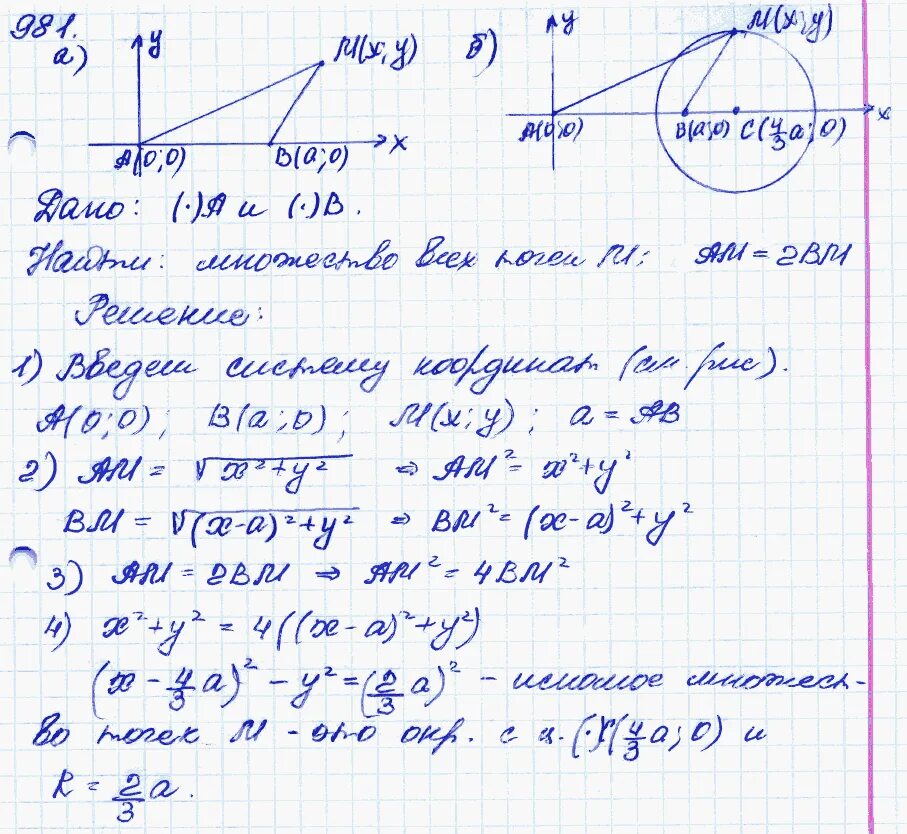 981.
а) y M(x; y) A(0;0) B(a;0) x
б) y M(x; y) A(0;0) B(a;0) C(4/3 a; 0) x
Дано: (·)A и (·)B.
Найти: множество всех точек M; AM = 2BM
Решение:
1) Введем систему координат (см. рис).
A(0;0); B(a;0); M(x;y); a = AB
2) AM = √(x² + y²) ⇒ AM² = x² + y²
BM = √((x-a)² + y²) ⇒ BM² = (x-a)² + y²
3) AM = 2BM ⇒ AM² = 4BM²
4) x² + y² = 4((x-a)² + y²)
(x - 4/3 a)² - y² = (2/3 a)² - искомое множест-
во точек M - это окр. с ц. (·)C(4/3 a; 0) и
R = 2/3 a.